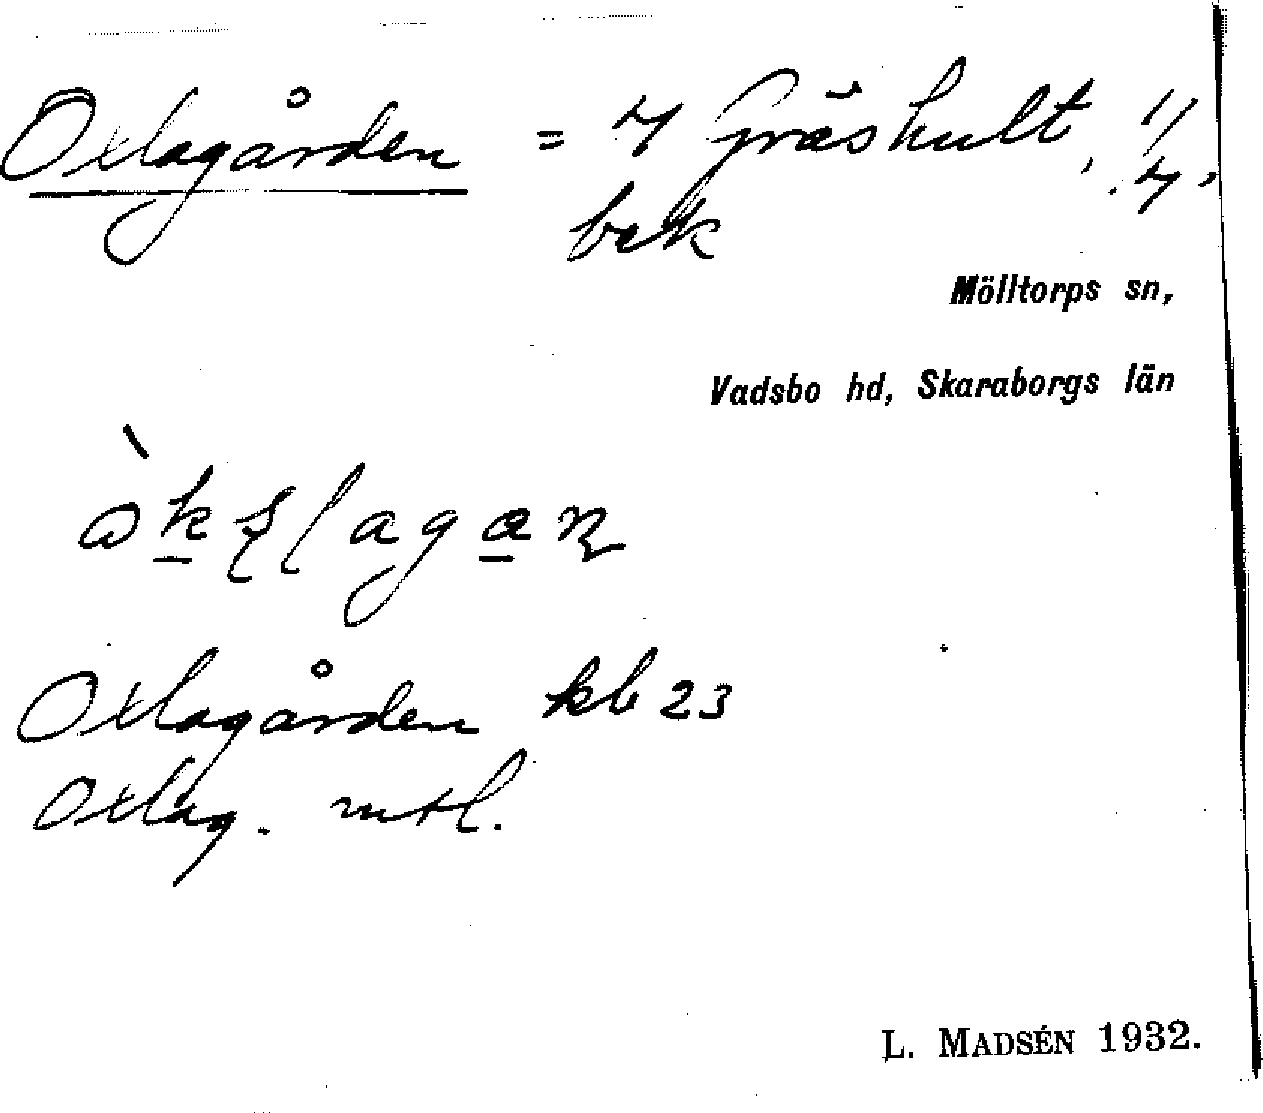 Oxlagården = 4 Gräshult, 1/4,
bek
Mölltorps sn,
Vadsbo hd, Skaraborgs län
Oxlagården kb 23
Oxlag. mtl.
L. MADSÉN 1932.